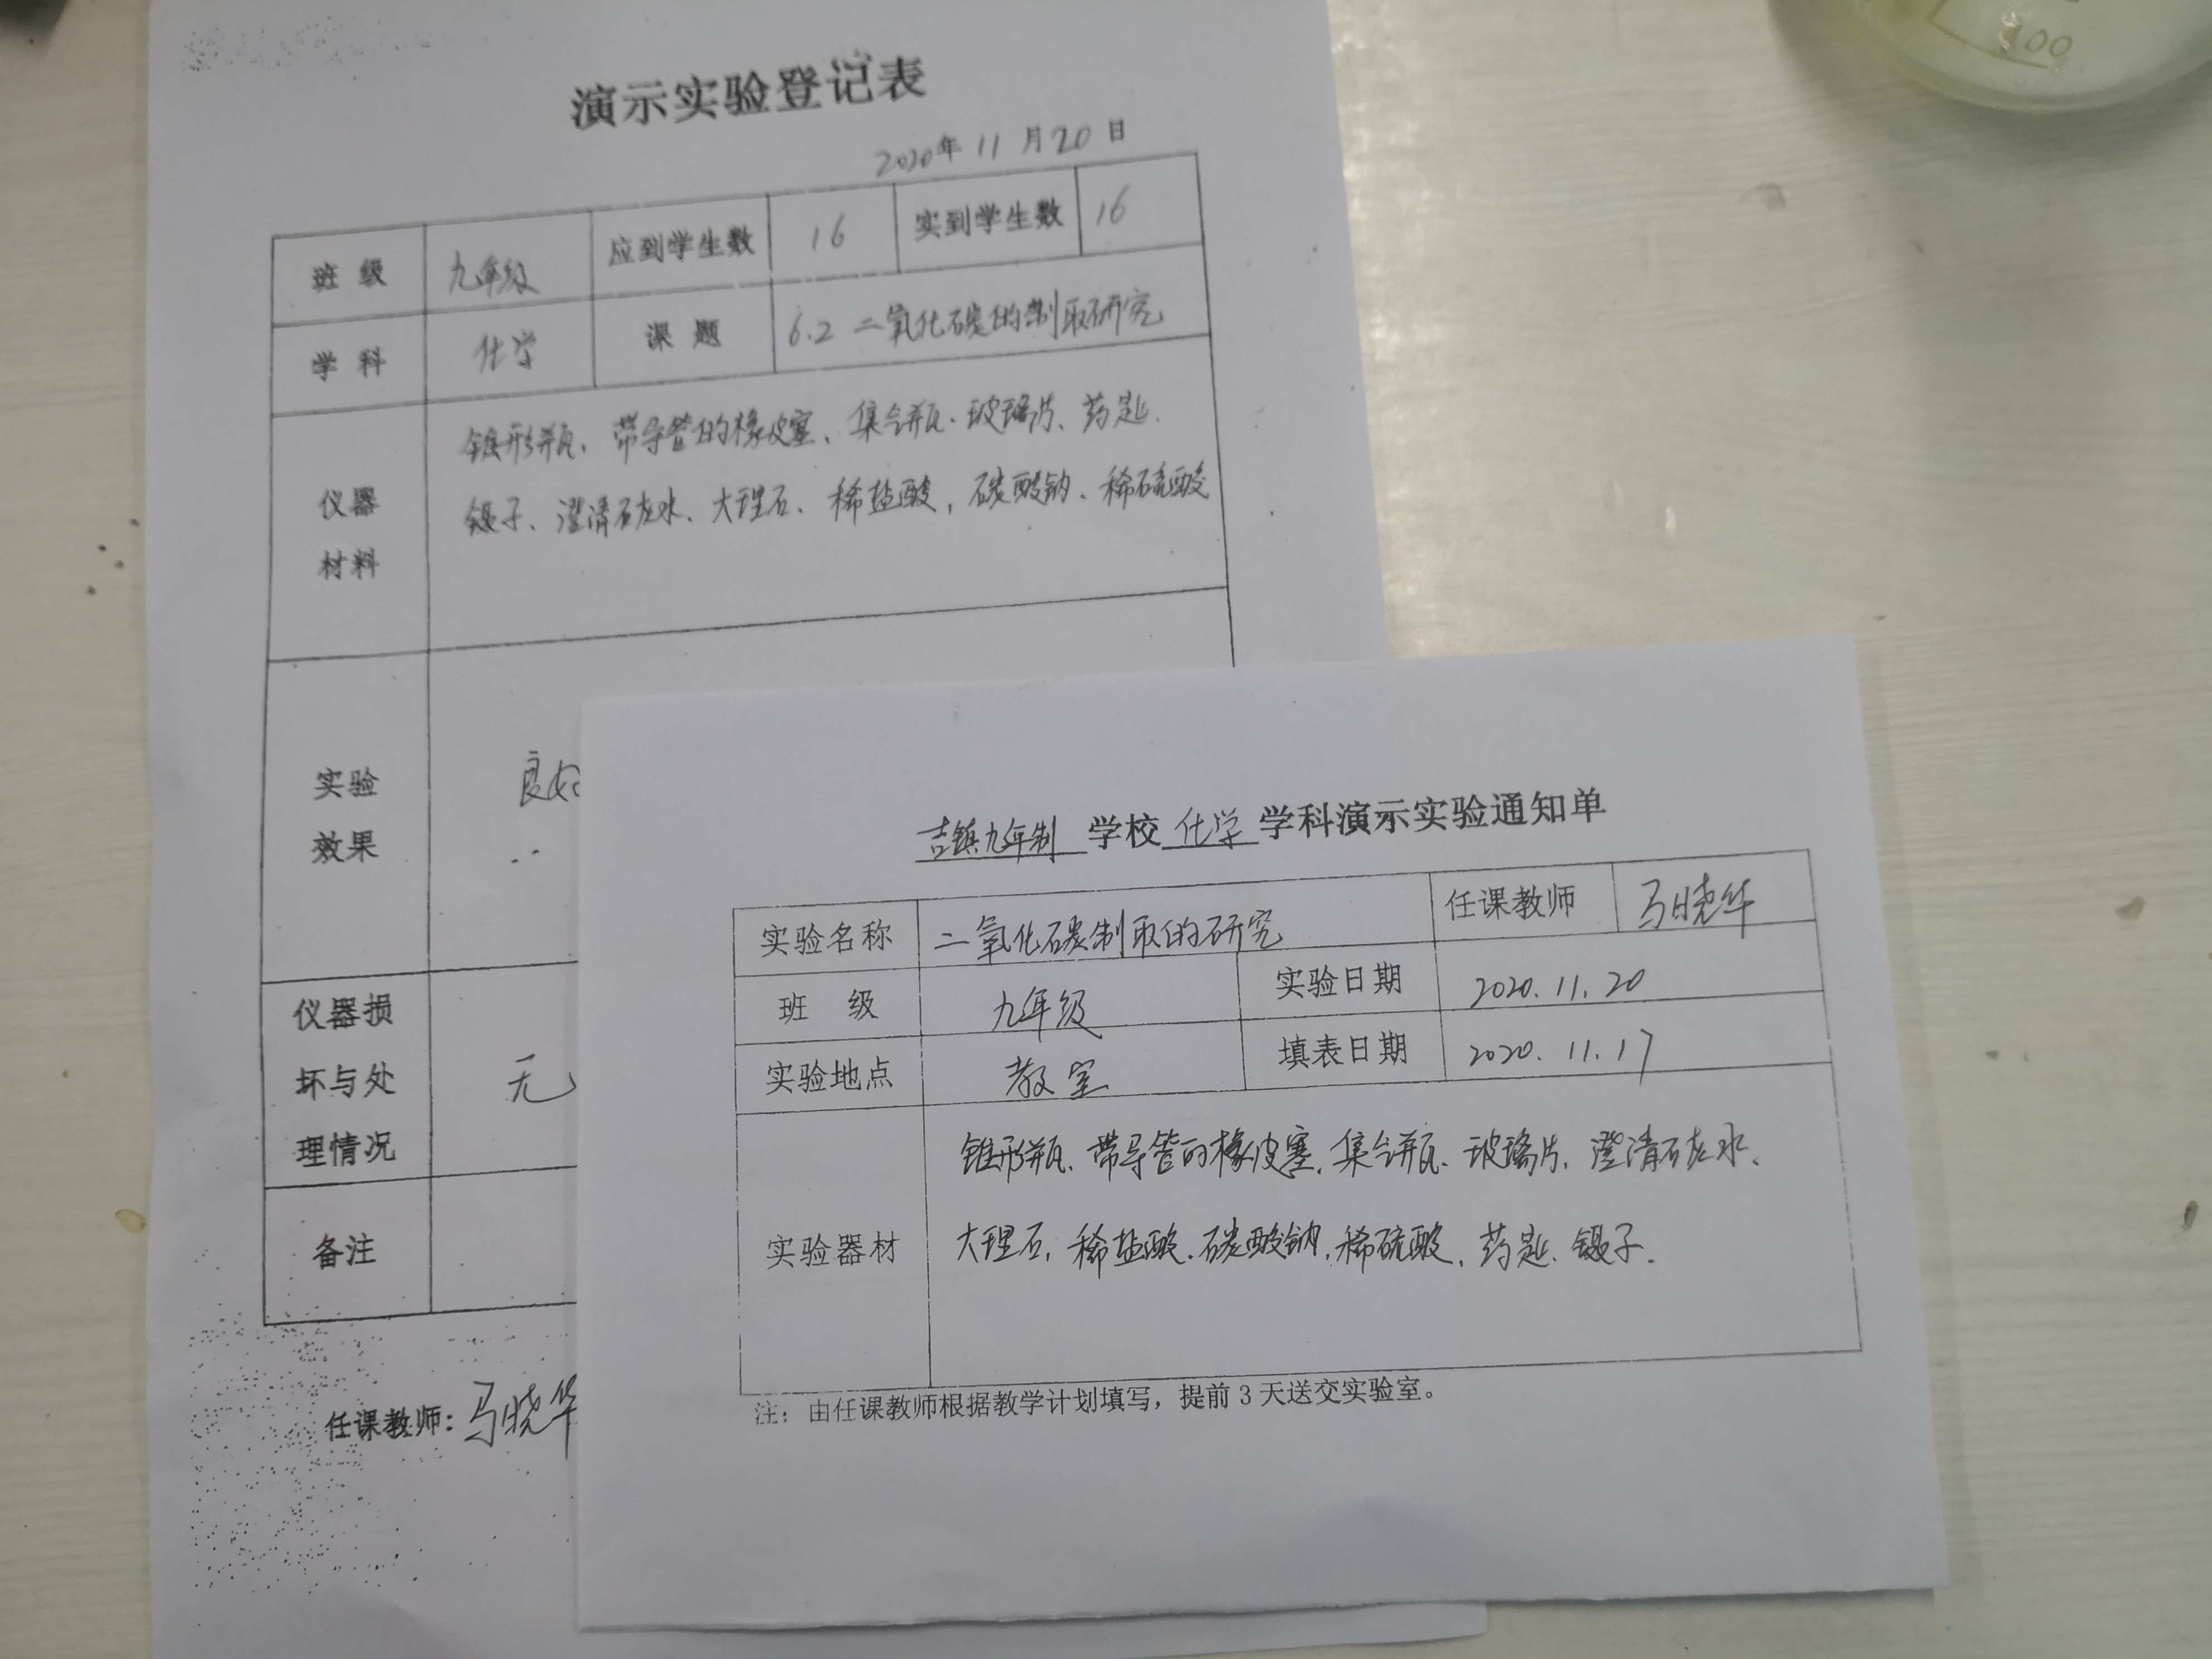 演示实验登记表
2020年 11 月 20 日
班 级 九年级 应到学生数 16 实到学生数 16
学 科 化学 课 题 6.2 二氧化碳的制取研究
仪器材料 锥形瓶、带导管的橡皮塞、集气瓶、玻璃片、药匙、
镊子、澄清石灰水、大理石、稀盐酸,碳酸钠、稀硫酸
实验
效果
良好
仪器损
坏与处
理情况
无
备注
任课教师: 马晓华
吉镇九年制 学校 化学 学科演示实验通知单
实验名称 二氧化碳制取的研究 任课教师 马晓华
班 级 九年级 实验日期 2020.11.20
实验地点 教室 填表日期 2020.11.17
实验器材 锥形瓶、带导管的橡皮塞、集气瓶、玻璃片、澄清石灰水、
大理石、稀盐酸、碳酸钠、稀硫酸、药匙、镊子.
注:由任课教师根据教学计划填写,提前 3 天送交实验室。
100